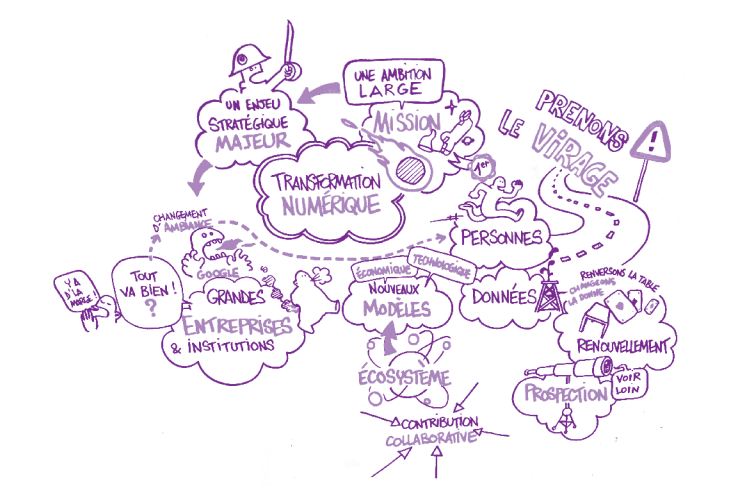 UN ENJEU
STRATÉGIQUE
MAJEUR
UNE AMBITION
LARGE
MISSION
TRANSFORMATION
NUMÉRIQUE
PRENONS
LE VIRAGE
!
1er
PERSONNES
CHANGEMENT
D'AMBIANCE
Y A
D'LA
MARGE!
TOUT
VA BIEN!
?
GOOGLE
GRANDES
ENTREPRISES
& INSTITUTIONS
ÉCONOMIQUE
TECHNOLOGIQUE
NOUVEAUX
MODÈLES
DONNÉES
RENVERSONS LA TABLE
CHANGEONS
LA DONNE
RENOUVELLEMENT
PROSPECTION
VOIR
LOIN
ÉCOSYSTÈME
CONTRIBUTION
COLLABORATIVE